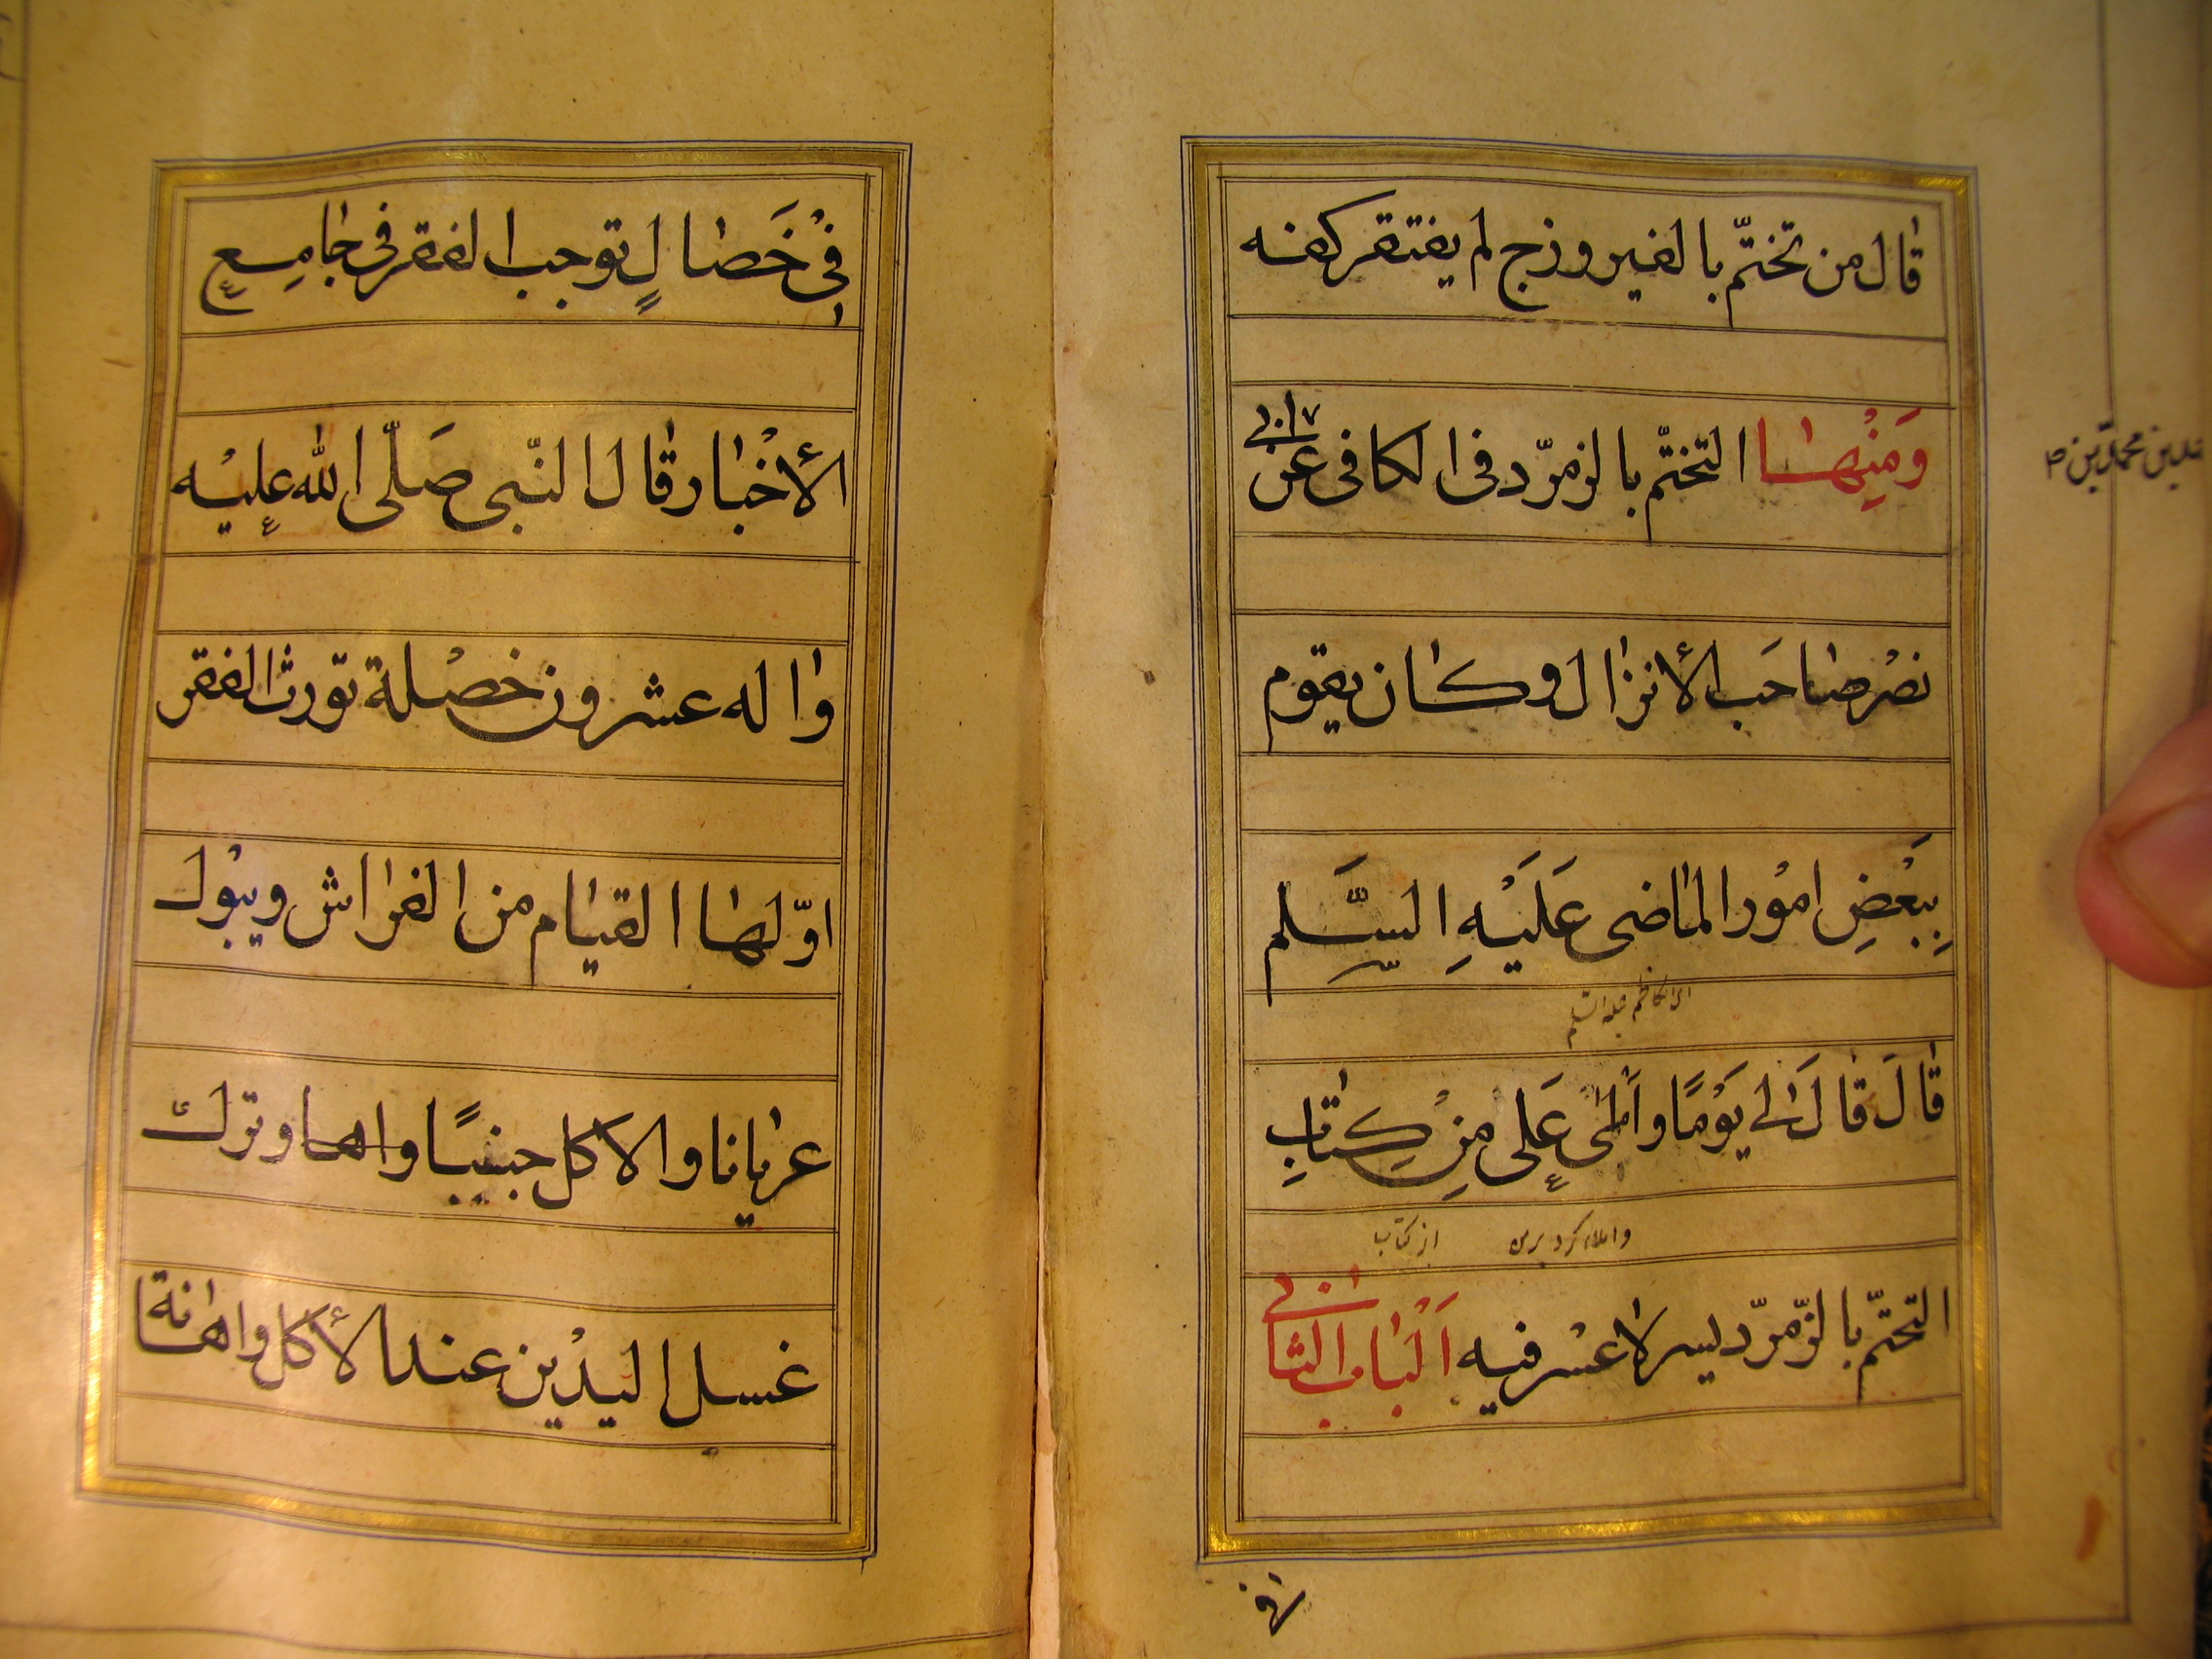 قال من تختّم بالفيروزج لم يفتقر كفه
وَمِنْها التختّم بالزمرّد فى الكافى عن
نصْر صاحَب الأنزال وكان يقوم
بِبَعْضِ امُور الماضى عَلَيْهِ السَّلم
عليه السلم
قالَ قالَ لى يَوْمًا وأملى عَلى مِنْ كِتابِ
از كتاب
التختّم بالزّمرّد يسر لا عسْر فيه اَلْباب الثانى
فى
فِىْ خَصالٍ توجب الفقر فى جامِعِ
الأخْبار قال النّبى صَلّى الله عليْه
واله عشرون خصْلة تورث الفقر
اوّلها القيام من الفراش ويبْول
عريانا والاكل جنبًا واها وترك
غسل اليدْين عند الأكل واهانة